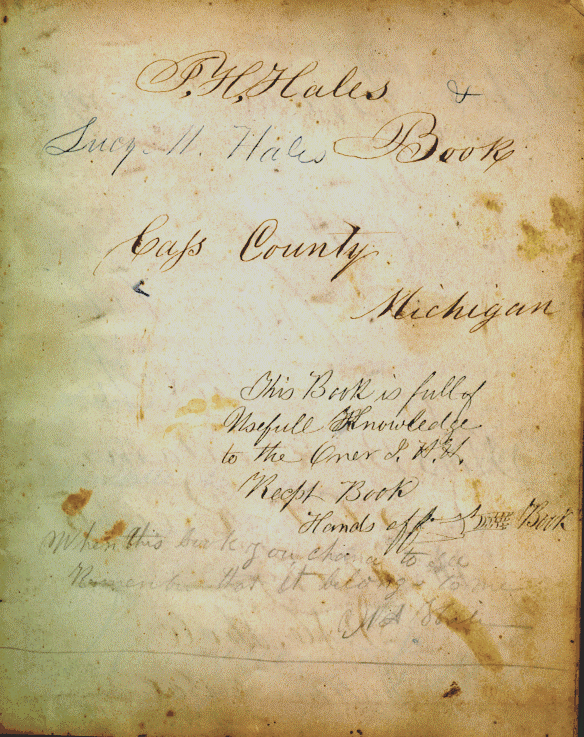 J. H. Hales &
Lucy H. Hales Book
Cass County
Michigan
This Book is full of
Usefull Knowledge
to the Oner J. H. H.
Recpt Book
Hands off Book
When this book you chance to se
Remember that it belongs to me